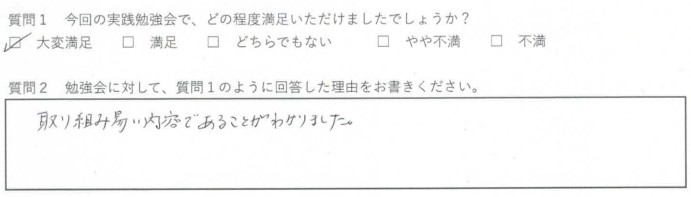 質問１　今回の実践勉強会で、どの程度満足いただけましたでしょうか？
☑　大変満足　☐　満足　☐　どちらでもない　☐　やや不満　☐　不満
質問２　勉強会に対して、質問１のように回答した理由をお書きください。
取り組み易い内容であることがわかりました。